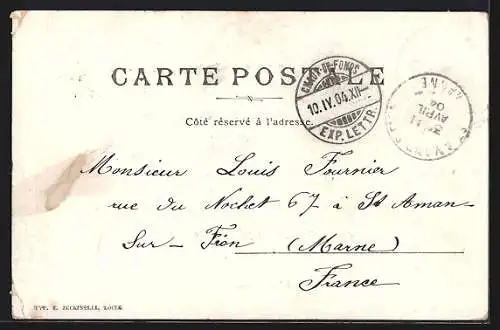 CARTE POSTALE
CHAUX-DE-FONDS
10.IV.04.XII
EXP. LETTR.
3E 11
AVRIL
04
MARNE
Côté réservé à l'adresse.
Monsieur Louis Fournier
rue du Nochet 67 à St Aman-
Sur-Fion (Marne)
France